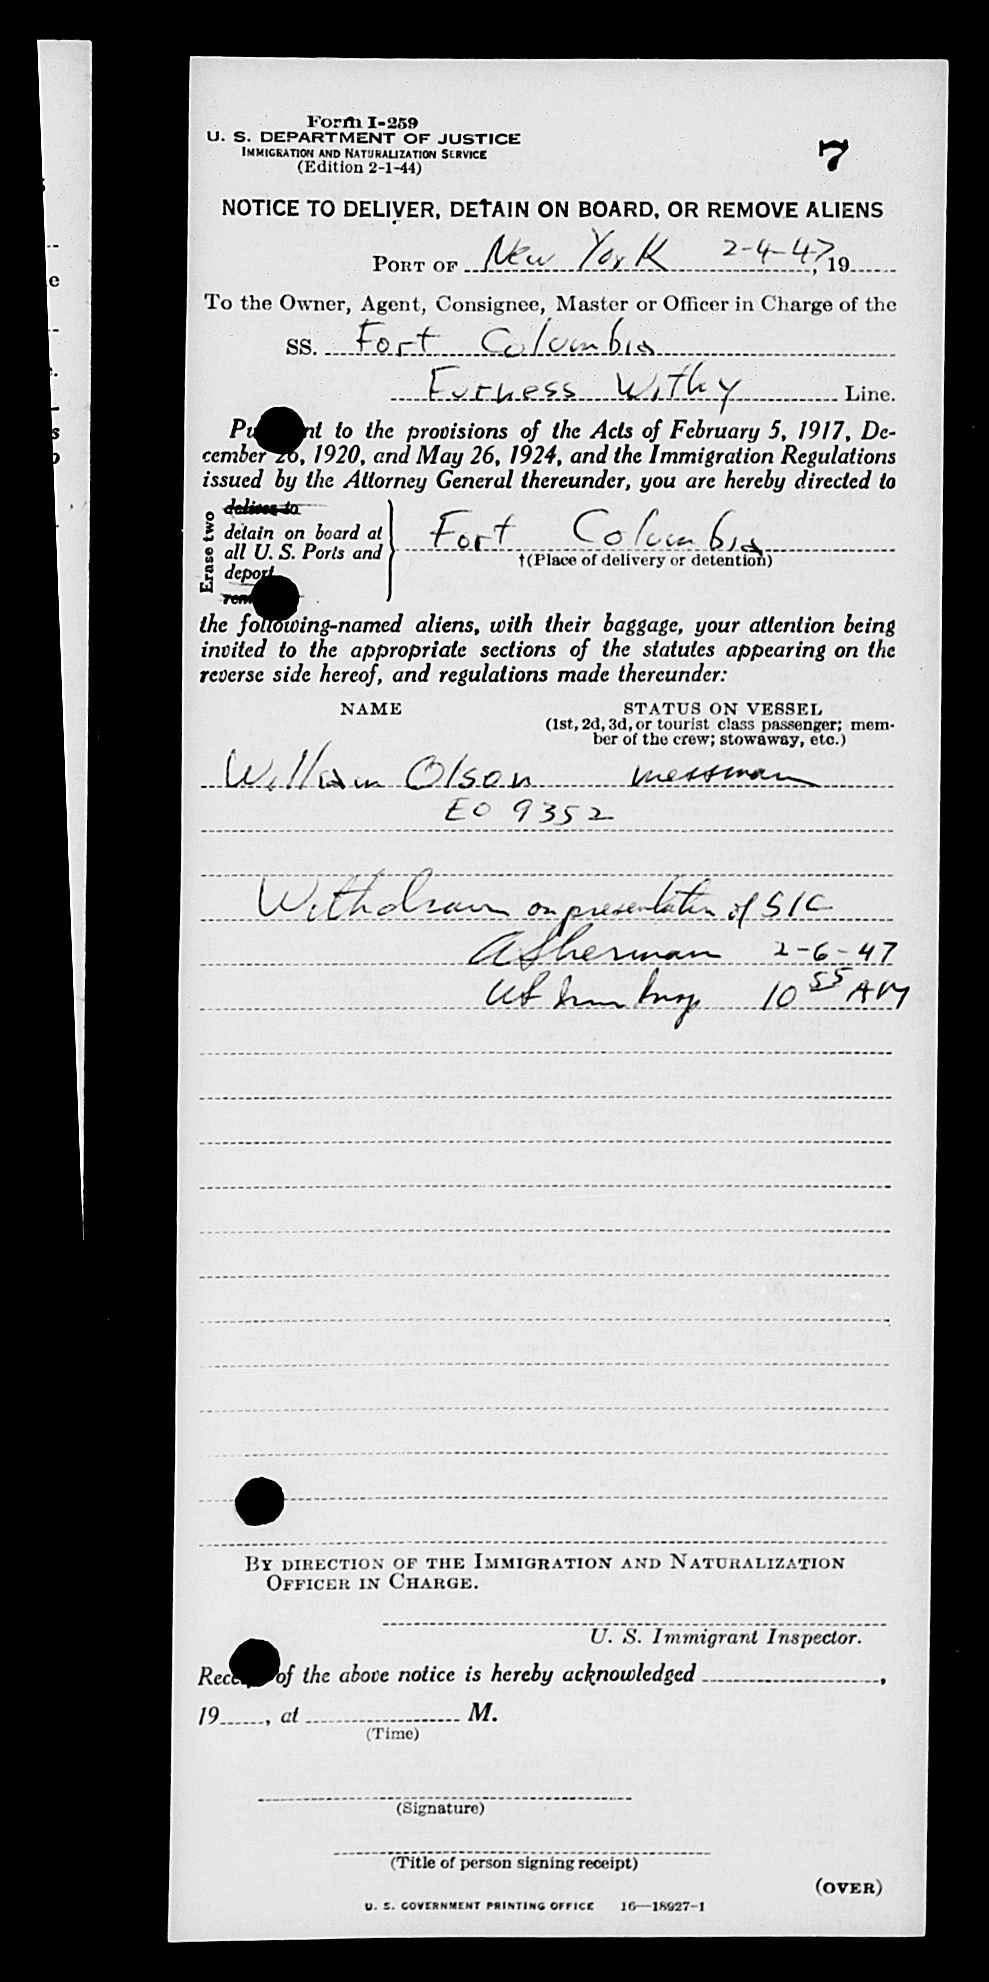 Form I-259
U. S. DEPARTMENT OF JUSTICE
IMMIGRATION AND NATURALIZATION SERVICE
(Edition 2-1-44)
7
NOTICE TO DELIVER, DETAIN ON BOARD, OR REMOVE ALIENS
PORT OF New York 2-4-47, 19
To the Owner, Agent, Consignee, Master or Officer in Charge of the
SS. Fort Columbia
Furness Withy Line.
to the provisions of the Acts of February 5, 1917, De-
cember 26, 1920, and May 26, 1924, and the Immigration Regulations
issued by the Attorney General thereunder, you are hereby directed to
Erase two
deliver to
detain on board at
all U. S. Ports and
deport
Fort Columbia
†(Place of delivery or detention)
the following-named aliens, with their baggage, your attention being
invited to the appropriate sections of the statutes appearing on the
reverse side hereof, and regulations made thereunder:
NAME STATUS ON VESSEL
(1st, 2d, 3d, or tourist class passenger; mem-
ber of the crew; stowaway, etc.)
William Olson messman
EO 9352
Withdrawn on presentation of S/C
A Sherman 2-6-47
US Imm Insp 10 55 AM
BY DIRECTION OF THE IMMIGRATION AND NATURALIZATION
OFFICER IN CHARGE.
U. S. Immigrant Inspector.
of the above notice is hereby acknowledged ,
19 , at M.
(Time)
(Signature)
(Title of person signing receipt)
(OVER)
U. S. GOVERNMENT PRINTING OFFICE 16—18927-1